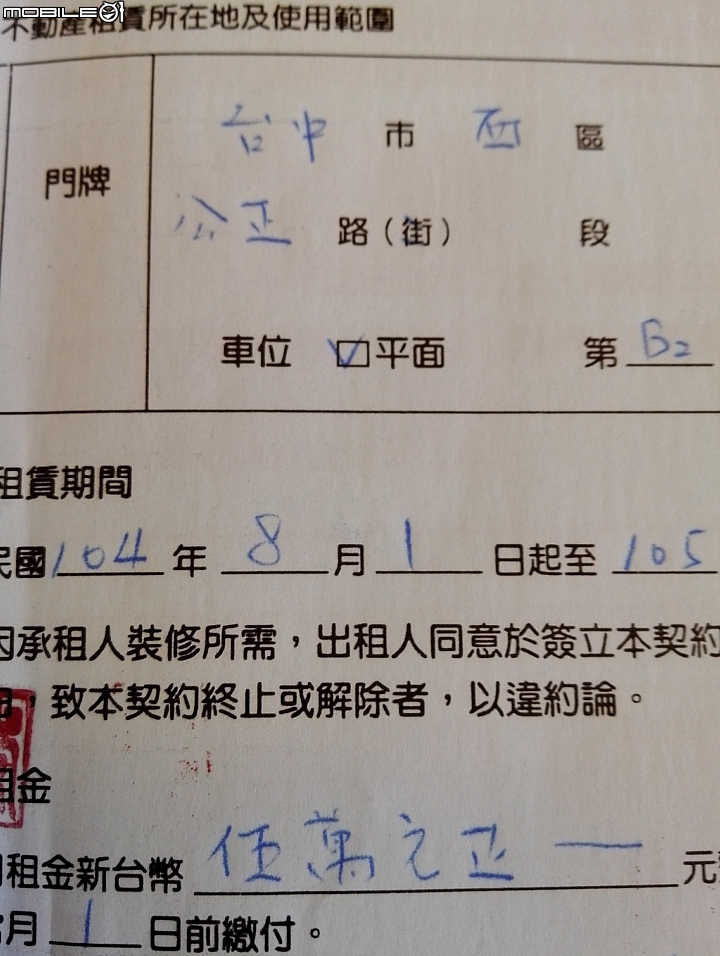 MOBILE01
不動產租賃所在地及使用範圍
門牌
台中 市 西 區
公正 路（街） 段
車位 ☑平面 第 B2
租賃期間
民國 104 年 8 月 1 日起至 105
因承租人裝修所需，出租人同意於簽立本契約
，致本契約終止或解除者，以違約論。
租金
租金新台幣 伍萬元正 — 元
月 1 日前繳付。